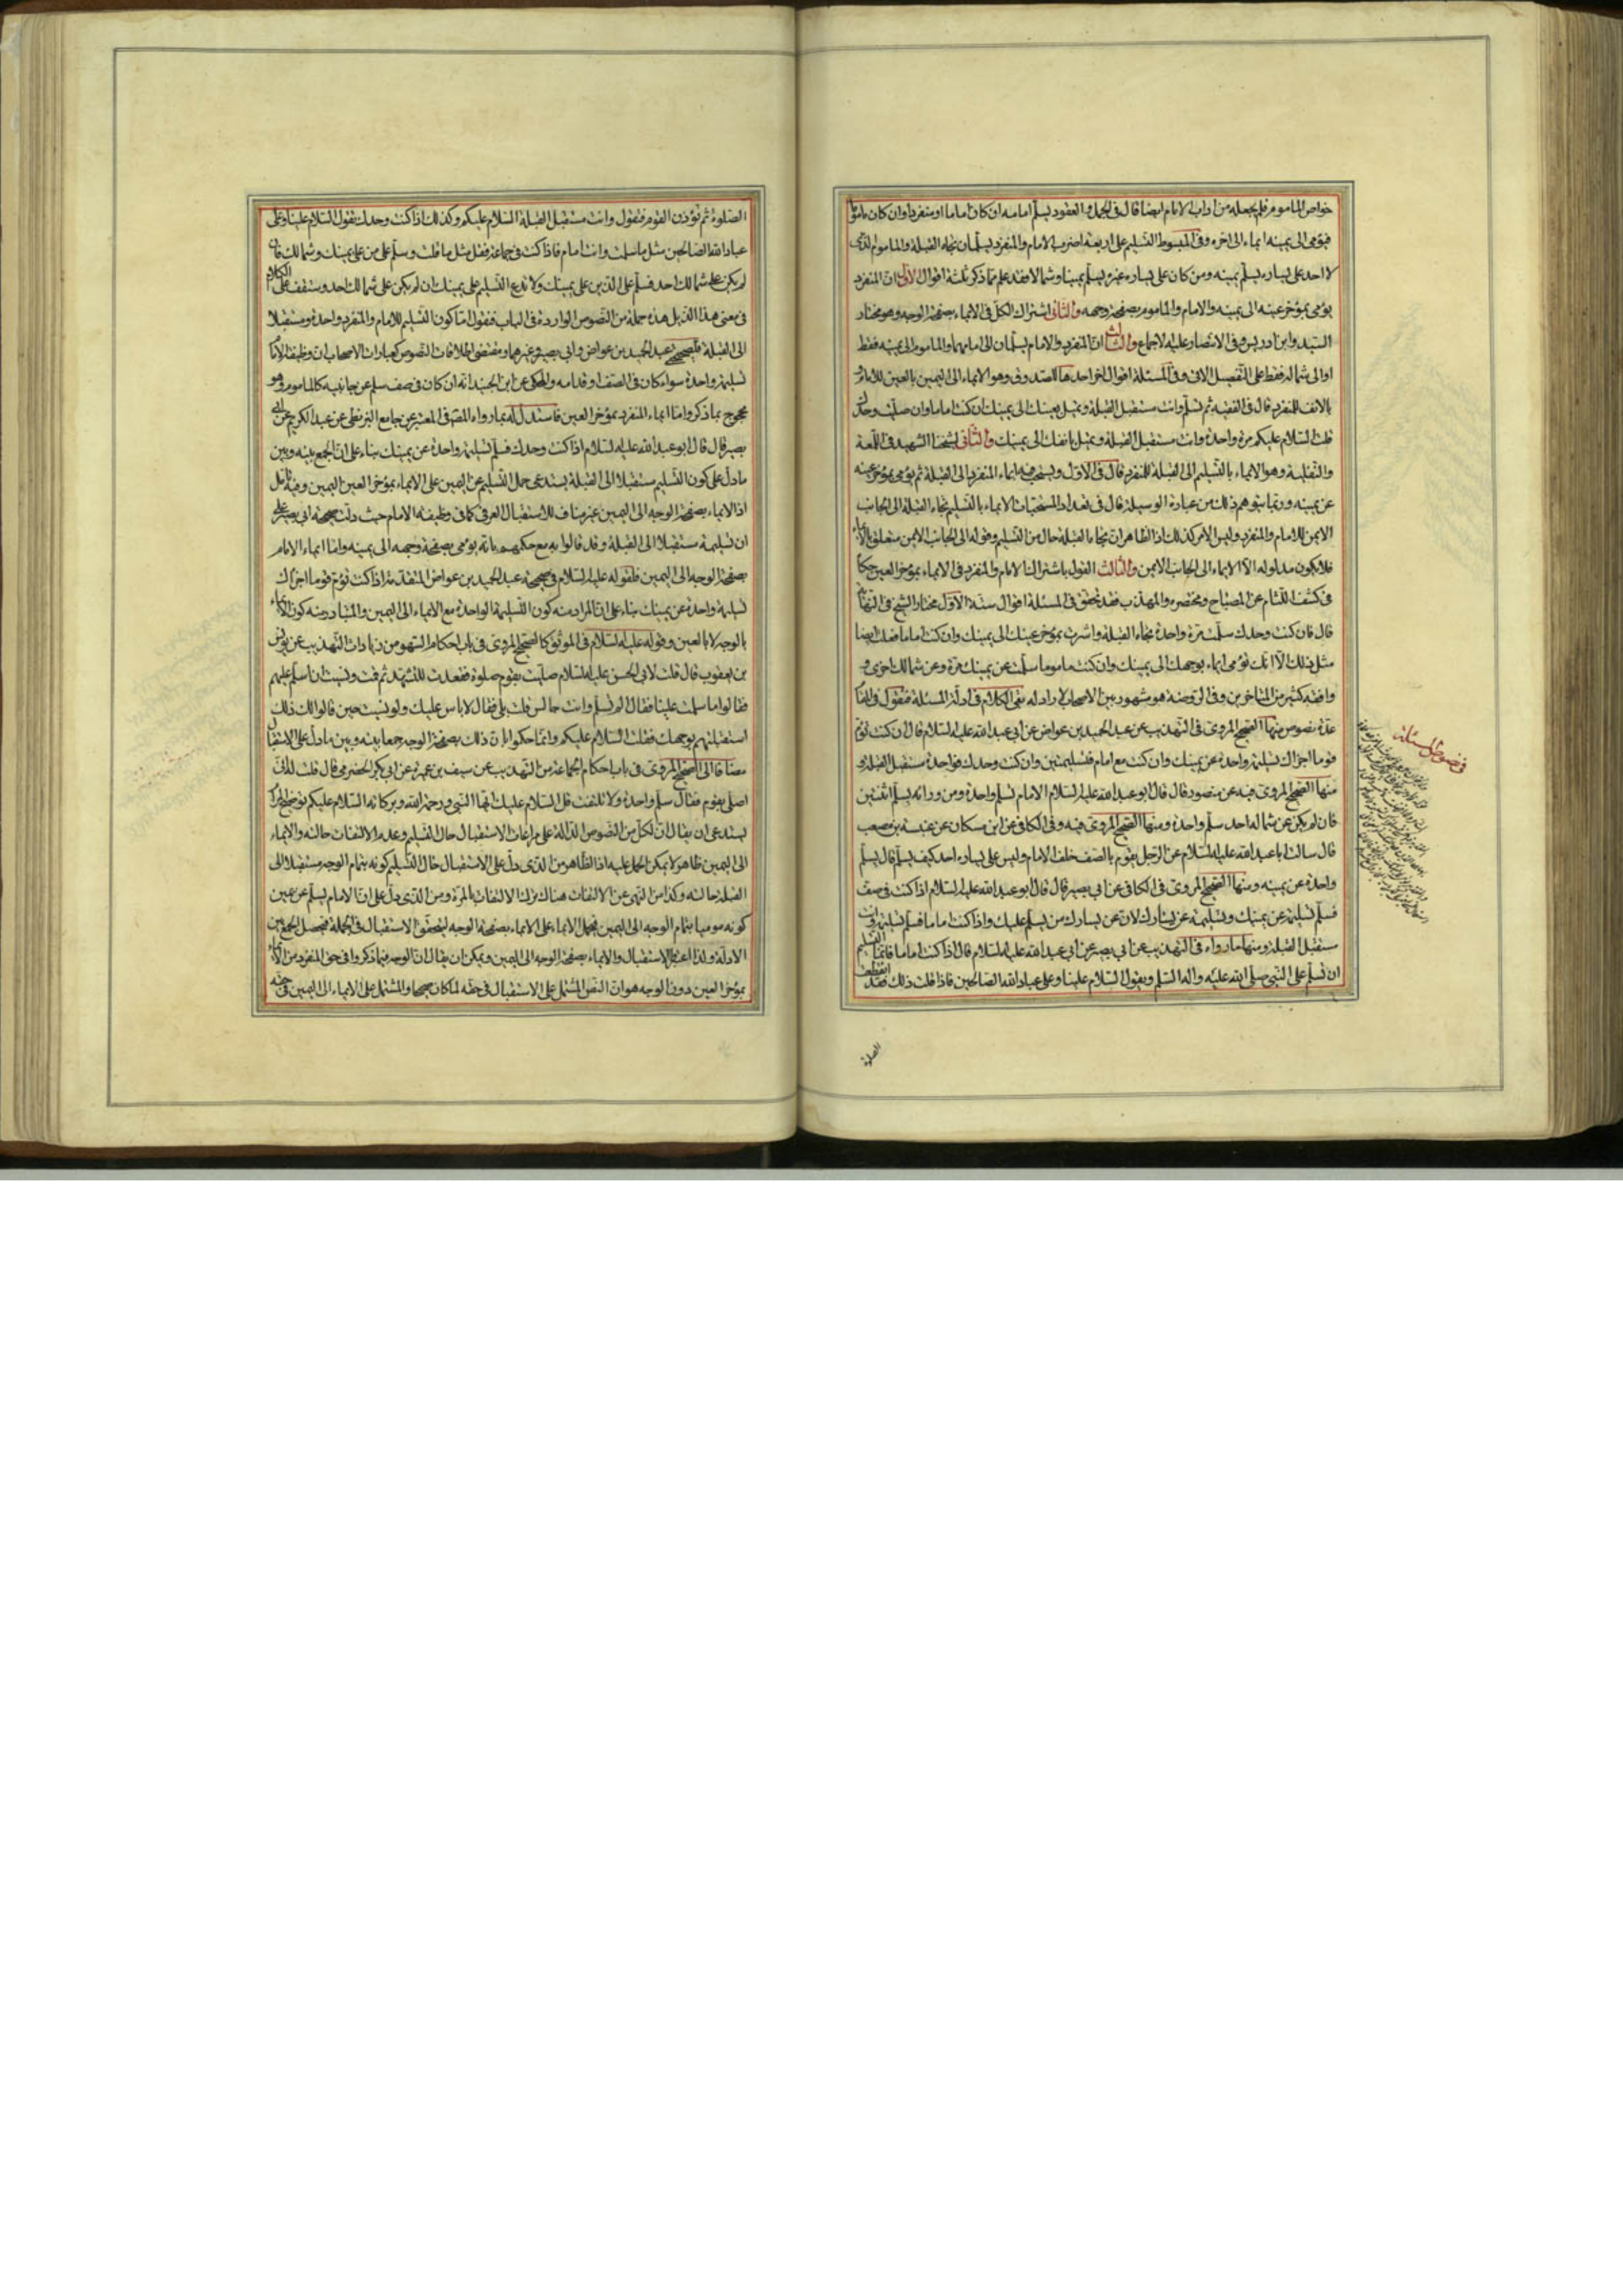 خواص المأموم فلم يجعله من آداب الامام ايضا قال في الجمل والعقود يسلّم امامه ان كان اماما او منفردا وان كان مأموما
فيومى الى يمينه ايماء الى اخره وفي المبسوط التسليم على اربعة اضرب الامام والمنفرد يسلّمان تجاه القبلة والمأموم الذي
لا احد على يساره يسلّم يمينه ومن كان على يساره غيره يسلّم يمينا وشمالا فقد علم مما ذكر ثلثة اقوال الاول ان المنفرد
يومى بمؤخر عينه الى يمينه والامام والمأموم بصفحة وجهه والثاني اشتراك الكل في الايماء بصفحة الوجه وهو مختار
السيد وابن ادريس وفي الانتصار عليه الاجماع والثالث ان المنفرد والامام يسلّمان الى امامهما والمأموم الى يمينه فقط
او الى شماله فقط على التفصيل الاتي وفي المسئلة اقوال اخر احدها للصدوق وهو الايماء الى اليمين بالعين للامام و
بالانف للمنفرد قال في الفقيه ثم تسلّم وانت مستقبل القبلة وتميل بعينك الى يمينك ان كنت اماما وان صليت وحدك
قلت السلام عليكم مرة واحدة وانت مستقبل القبلة وتميل بانفك الى يمينك والثاني لشيخنا الشهيد في اللمعة
والنفلية وهو الايماء بالتسليم الى القبلة للمنفرد قال في الاول ويستحب فيه ايماء المنفرد الى القبلة ثم يومى بمؤخر عينه
عن يمينه وربما يتوهم ذلك من عبارة الوسيلة قال في تعداد المستحبات الايماء بالتسليم تجاه القبلة الى الجانب
الايمن للامام والمنفرد وليس الامر كذلك اذ الظاهر ان تجاه القبلة حال من التسليم وقوله الى الجانب الايمن متعلق بالايماء
فلا يكون مدلوله الا الايماء الى الجانب الايمن والثالث القول باشتراك الامام والمنفرد في الايماء بمؤخر العين حكا
في كشف اللثام عن المصباح ومختصره والمهذب فقد تحقق في المسئلة اقوال ستة الاول مختار الشيخ في النهاية
قال فان كنت وحدك سلّمت مرة واحدة تجاه القبلة واشرت بمؤخر عينك الى يمينك وان كنت اماما فعلت ايضا
مثل ذلك الا انك تومى ايماء بوجهك الى يمينك وان كنت مأموما سلمت عن يمينك مرة وعن شمالك اخرى و
وافقه كثير من المتاخرين وفي الروضة هو مشهور بين الاصحاب لا راد له بقى الكلام في ادلة المسئلة فنقول وللقا
عدة نصوص منها الصحيح المروي في التهذيب عن عبد الحميد بن عواض عن ابي عبد الله عليه السلام قال ان كنت تؤم
قوما اجزأك تسليمة واحدة عن يمينك وان كنت مع امام فتسليمتين وان كنت وحدك فواحدة مستقبل القبلة و
منها الصحيح المروي فيه عن منصور قال قال ابو عبد الله عليه السلام الامام يسلّم واحدة ومن ورائه يسلّم اثنتين
فان لم يكن عن شماله احد سلّم واحدة ومنها الصحيح المروي فيه وفي الكافي عن ابن مسكان عن عنبسة بن مصعب
قال سالت ابا عبد الله عليه السلام عن الرجل يقوم بالصف خلف الامام وليس على يساره احد كيف يسلّم قال يسلّم
واحدة عن يمينه ومنها الصحيح المروي في الكافي عن ابي بصير قال قال ابو عبد الله عليه السلام اذا كنت في صف
فسلّم تسليمة عن يمينك وتسليمة عن يسارك لان عن يسارك من يسلّم عليك واذا كنت اماما فسلّم تسليمة وانت
مستقبل القبلة ومنها ما رواه في التهذيب عن ابي بصير عن ابي عبد الله عليه السلام قال اذا كنت اماما فانما التسليم
ان تسلّم على النبي صلى الله عليه واله السلم وتقول السلام علينا وعلى عباد الله الصالحين فاذا قلت ذلك فقد انقطعت
الصلوة
الصلوة ثم تؤذن القوم فتقول وانت مستقبل القبلة السلام عليكم وكذلك اذا كنت وحدك تقول السلام علينا وعلى
عباد الله الصالحين مثل ما سلمت وانت امام فاذا كنت في جماعة فقل مثل ما قلت وسلّم على من على يمينك وشمالك فان
لم يكن على شمالك احد فسلّم على الذين على يمينك ولا تدع التسليم على يمينك ان لم يكن على شمالك احد وستقف على الكلام
في معنى هذا الذيل هذه جملة من النصوص الواردة في الباب فنقول اما كون التسليم للامام والمنفرد واحدة ومستقبلا
الى القبلة فلصحيح عبد الحميد بن عواض وابي بصير وغيرهما ومقتضى اطلاقات النصوص كعبارات الاصحاب ان وظيفة الامام
تسليمة واحدة سواء كان في الصف او قدامه والمحكي عن ابن الجنيد انه ان كان في صف سلم عن جانبيه كالمأموم وهو
محجوج بما ذكر واما ايماء المنفرد بمؤخر العين فاستدل له بما رواه المصنف في المعتبر عن جامع البزنطي عن عبد الكريم عن ابي
بصير قال قال ابو عبد الله عليه السلام اذا كنت وحدك فسلّم تسليمة واحدة عن يمينك بناء على ان الجمع بينه وبين
ما دل على كون التسليم مستقبلا الى القبلة يستدعى حمل التسليم عن اليمين على الايماء بمؤخر العين اليمين وفيه تأمل
اذ الايماء بصفحة الوجه الى اليمين غير مناف للاستقبال العرفي كما في وظيفة الامام حيث دلت صحيحة ابي بصير على
ان تسليمه مستقبلا الى القبلة وقد قالوا به مع حكمهم بانه يومى بصفحة وجهه الى يمينه واما ايماء الامام
بصفحة الوجه الى اليمين فلقوله عليه السلام في صحيحة عبد الحميد بن عواض المتقدمة اذا كنت تؤم قوما اجزأك
تسليمة واحدة عن يمينك بناء على ان المراد منه كون التسليمة الواحدة مع الايماء الى اليمين والمتبادر منه كون الايماء
بالوجه لا بالعين وقوله عليه السلام في الموثق كالصحيح المروي في باب احكام السهو من زيادات التهذيب عن يونس
بن يعقوب قال قلت لابي الحسن عليه السلام صليت بقوم صلوة فقعدت للتشهد ثم قمت ونسيت ان اسلّم عليهم
فقالوا ما سلمت علينا فقال الم تسلّم وانت جالس قلت بلى فقال لا باس عليك ولو نسيت حين قالوا لك ذلك
استقبلتهم بوجهك فقلت السلام عليكم وانما حكموا بان ذلك بصفحة الوجه جمعا بينه وبين ما دل على الاستقبال
مضافا الى الصحيح المروي في باب احكام الجماعة من التهذيب عن سيف بن عميرة عن ابي بكر الحضرمي قال قلت له اني
اصلي بقوم فقال سلّم واحدة ولا تلتفت قل السلام عليك ايها النبي ورحمة الله وبركاته السلام عليكم توضيح المرا
يستدعى ان يقال ان كل من النصوص الدالة على مراعات الاستقبال حال التسليم وعدم الالتفات حالته والايماء
الى اليمين ظاهر لا يمكن الحمل عليه اذ الظاهر من الذي دل على الاستقبال حال التسليم كونه بتمام الوجه مستقبلا الى
القبلة حالته وكذا من النهى عن الالتفات هناك ترك الالتفات بالمرة ومن الذي دل على ان الامام يسلّم عن يمين
كونه موميا بتمام الوجه الى اليمين فيحمل الايماء على الايماء بصفحة الوجه ليتحقق الاستقبال في الجملة فيحصل الجمع بين
الادلة ولذا اعتبر الاستقبال والايماء بصفحة الوجه الى اليمين ويمكن ان يقال ان الوجه فيما ذكروا في حق المنفرد من الايماء
بمؤخر العين دون الوجه هو ان النص المشتمل على الاستقبال في حقه لما كان صحيحا والمشتمل على الايماء الى اليمين في حقه